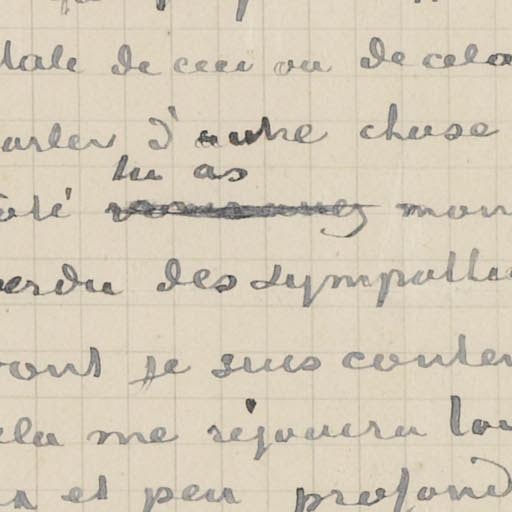 de ceci ou de cela
parler d'autre chose
tu as
vous avez mon
perdu des sympathi
dont je suis conten
cela me réjouira
et peu profond